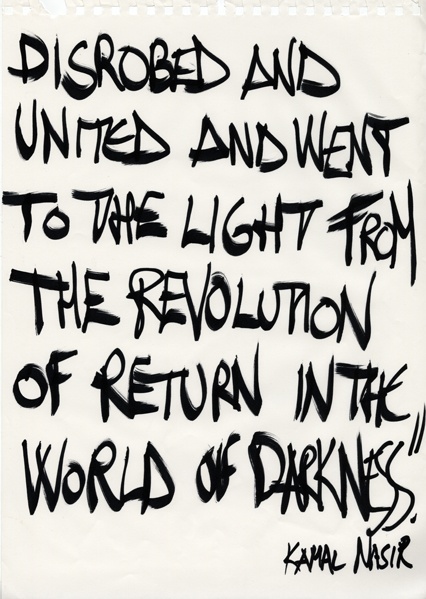 DISROBED AND
UNITED AND WENT
TO THE LIGHT FROM
THE REVOLUTION
OF RETURN IN THE
WORLD OF DARKNESS."
KAMAL NASIR